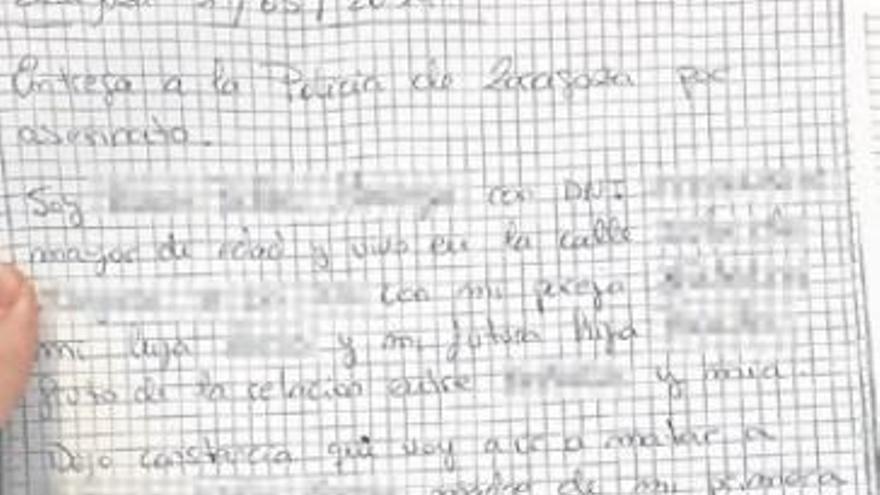 Entrega a la Policia de Zaragoza por
asesinato.
Soy con DNI
mayor de edad y vivo en la calle
con mi pareja
mi hija y mi futura hija
fruto de la relación entre y mia.
Dejo constancia que voy a ir a matar a
madre de mi primera